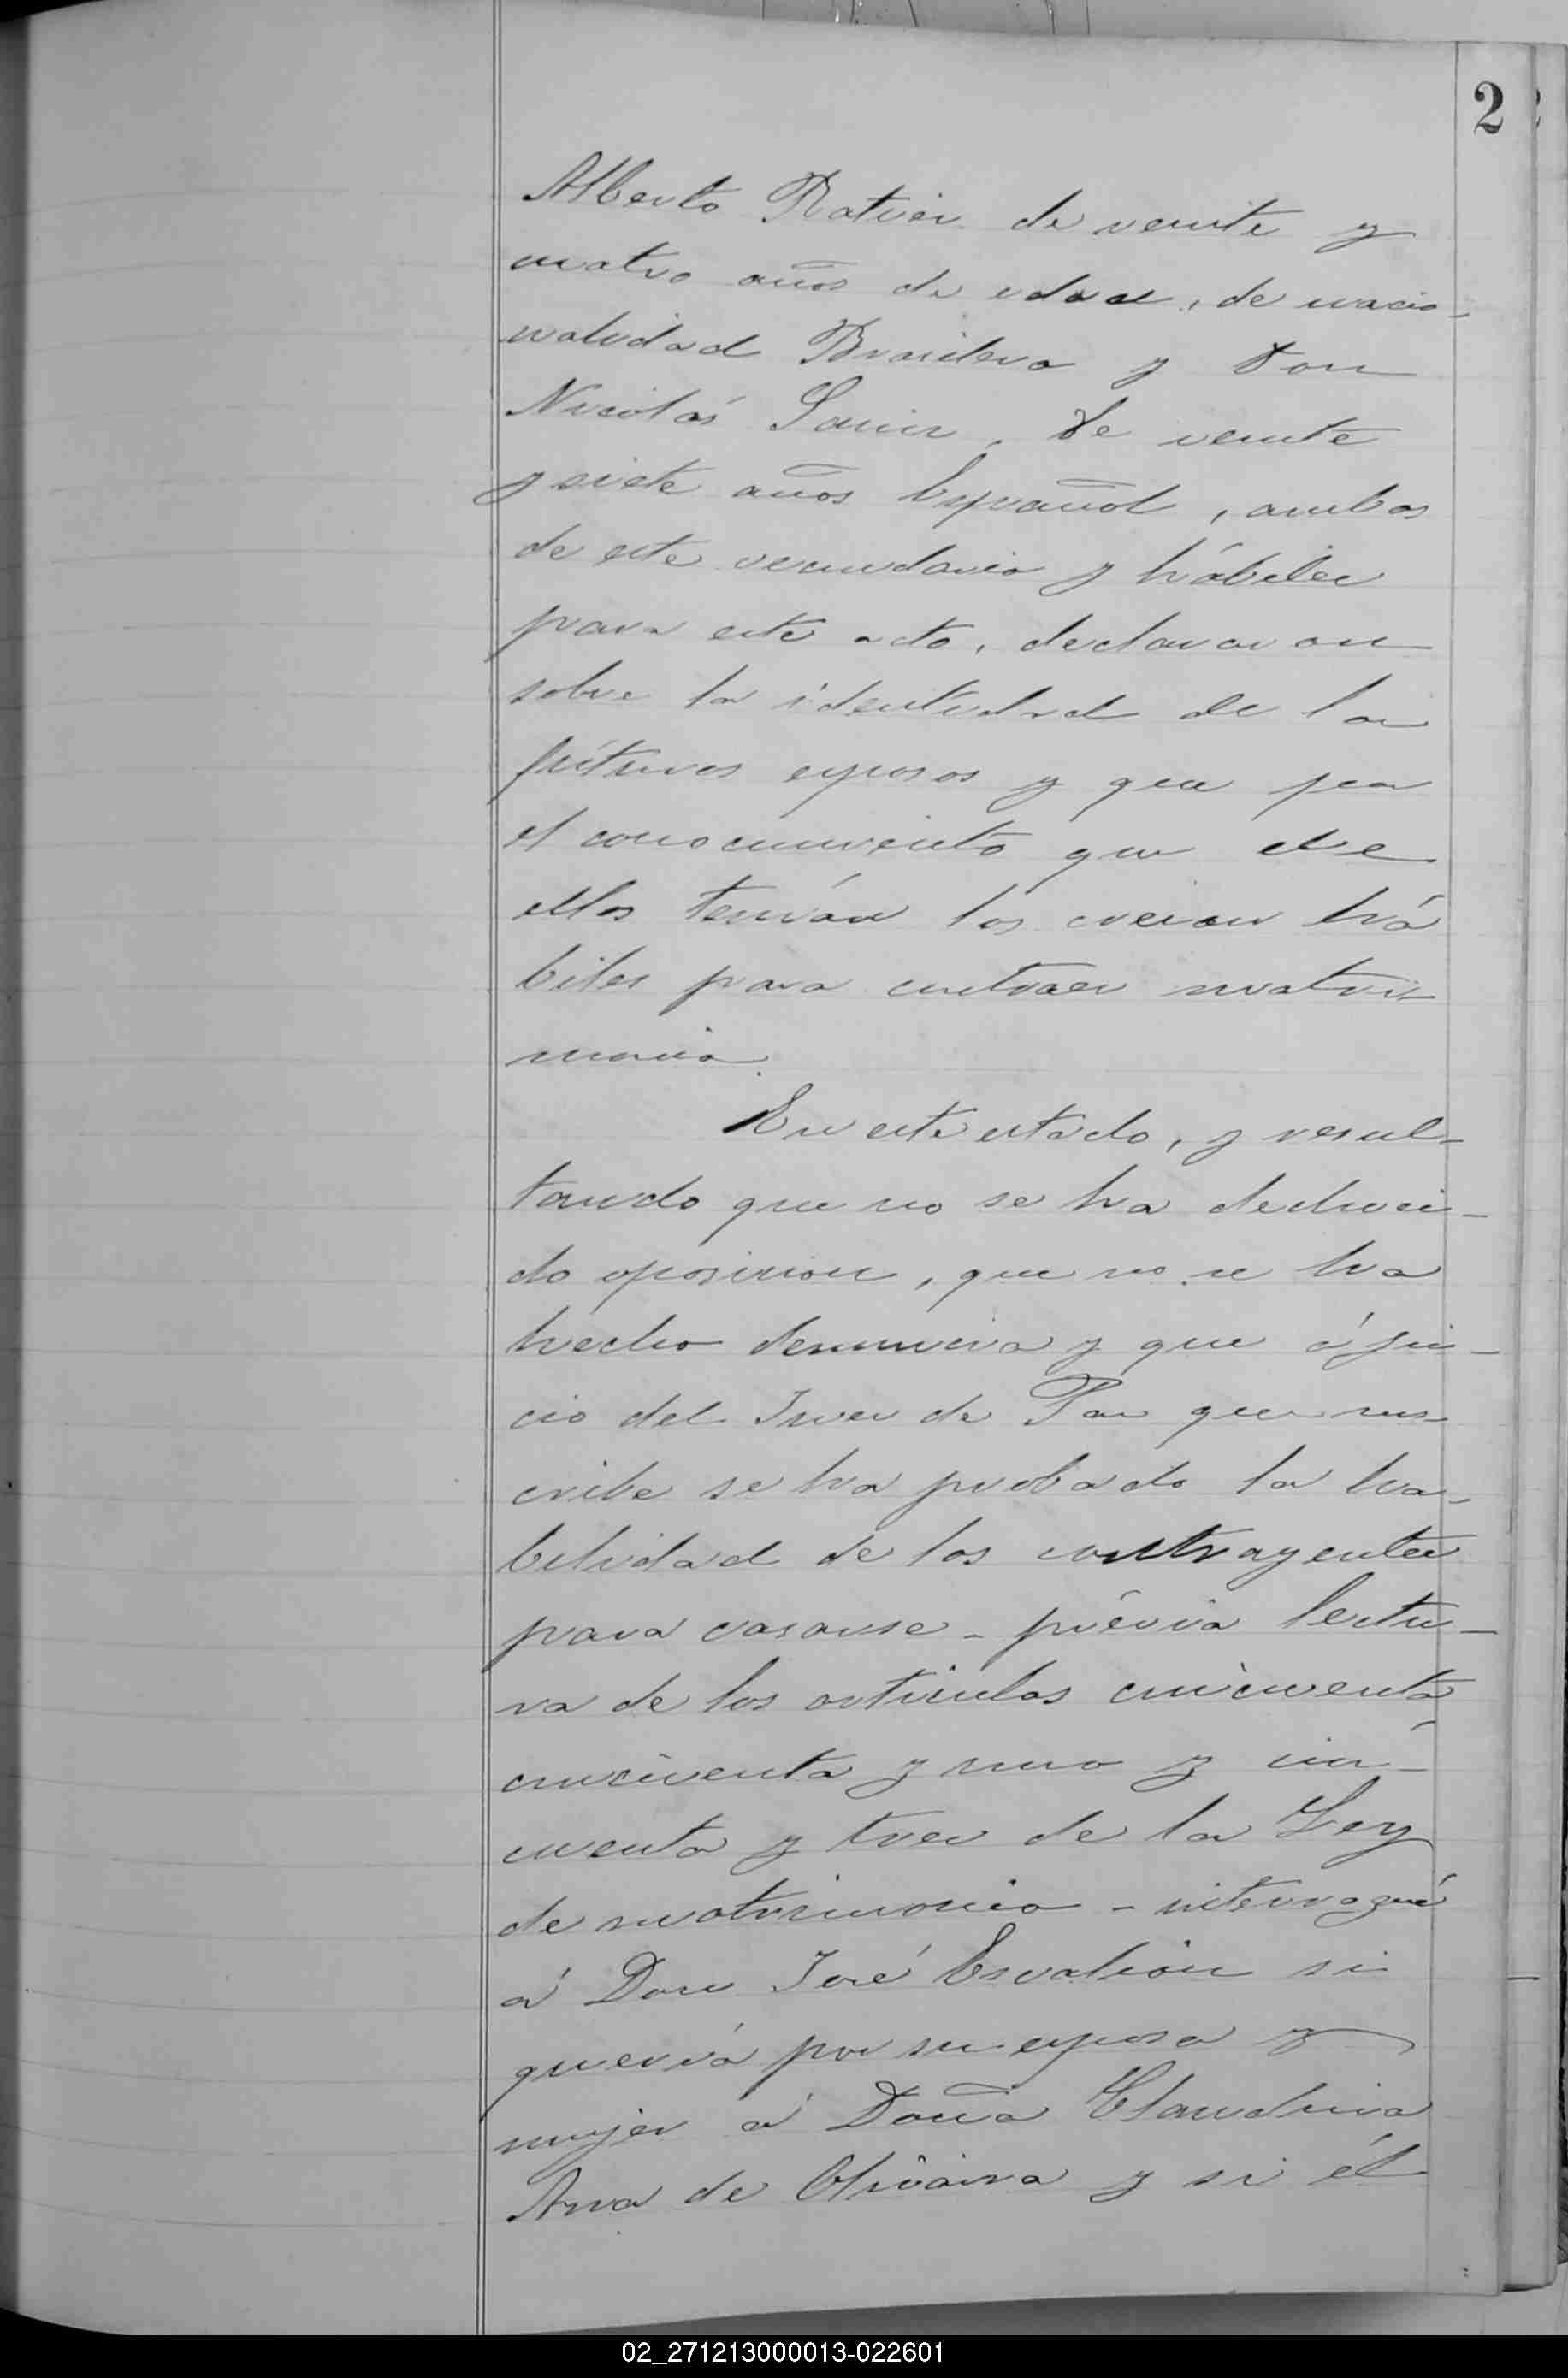 2
Alberto Ratier de veinte y
cuatro años de edad, de nacio-
nalidad Brasilera y Don
Nicolás de veinte
y siete años Español, ambos
de este vecindario y hábiles
para este acto, declararon
sobre la identidad de los
fúturos esposos y que por
el conocimiento que de
ellos tenían los creían há
biles para contraer matri-
monio.
En este estado, y resul-
tando que no se ha deduci-
do oposicion, que no se ha
hecho denuncia y que á jui-
cio del Juez de Paz que sus-
cribe se ha probado la ha-
bilidad de los contrayentes
para casarse - prévia lectu-
ra de los articulos cincuenta
cincuenta y uno y cin-
cuenta y tres de la Ley
de matrimonio - interrogué
á Don José si
quería por su esposa y
mujer á Doña Claudina
Ana de Olivaira y si él
02_271213000013-022601